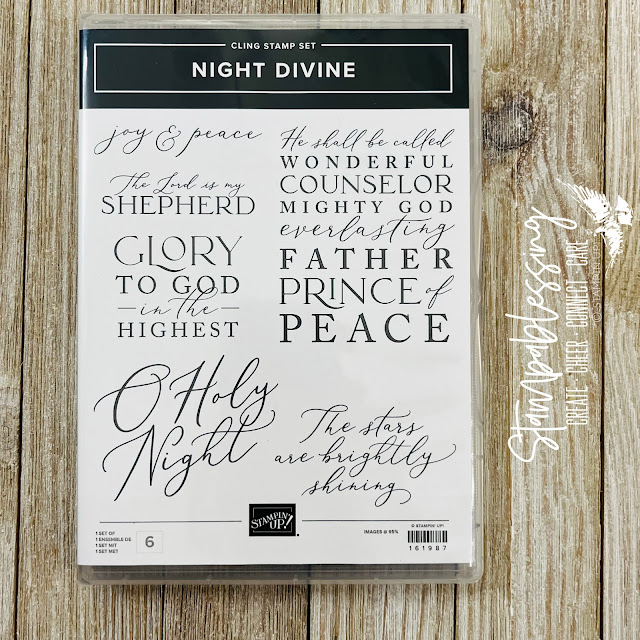 CLING STAMP SET
NIGHT DIVINE
joy & peace
The Lord is my
SHEPHERD
GLORY
TO GOD
in the
HIGHEST
He shall be called
WONDERFUL
COUNSELOR
MIGHTY GOD
everlasting
FATHER
PRINCE of
PEACE
O Holy
Night
The stars
are brightly
shining
STAMPIN' UP!
1 SET OF
1 ENSEMBLE DE
1 SET MIT
1 SET MET
6
IMAGES @ 65%
© STAMPIN' UP!
161987
Stampablessing
CREATE CHEER CONNECT CARE